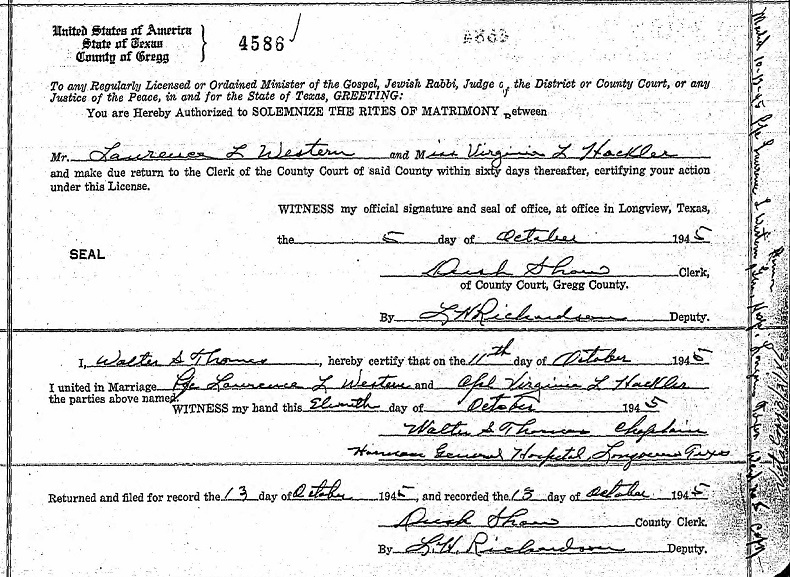 United States of America
State of Texas
County of Gregg
4586
To any Regularly Licensed or Ordained Minister of the Gospel, Jewish Rabbi, Judge of the District or County Court, or any
Justice of the Peace, in and for the State of Texas, GREETING:
You are Hereby Authorized to SOLEMNIZE THE RITES OF MATRIMONY Between
Mr. Lawrence L Western and Miss Virginia L Hackler
and make due return to the Clerk of the County Court of said County within sixty days thereafter, certifying your action
under this License.
WITNESS my official signature and seal of office, at office in Longview, Texas,
the 5 day of October 1945
SEAL
Dush Shaw Clerk,
of County Court, Gregg County.
By L H Richardson Deputy.
I, Walter S Thomas, hereby certify that on the 11th day of October 1945
I united in Marriage Pfc Lawrence L Western and Cpl Virginia L Hackler
the parties above named.
WITNESS my hand this Eleventh day of October 1945
Walter S Thomas Chaplain
Harmon General Hospital, Longview Texas
Returned and filed for record the 13 day of October 1945, and recorded the 15 day of October 1945
Dush Shaw County Clerk.
By L. H. Richardson Deputy.